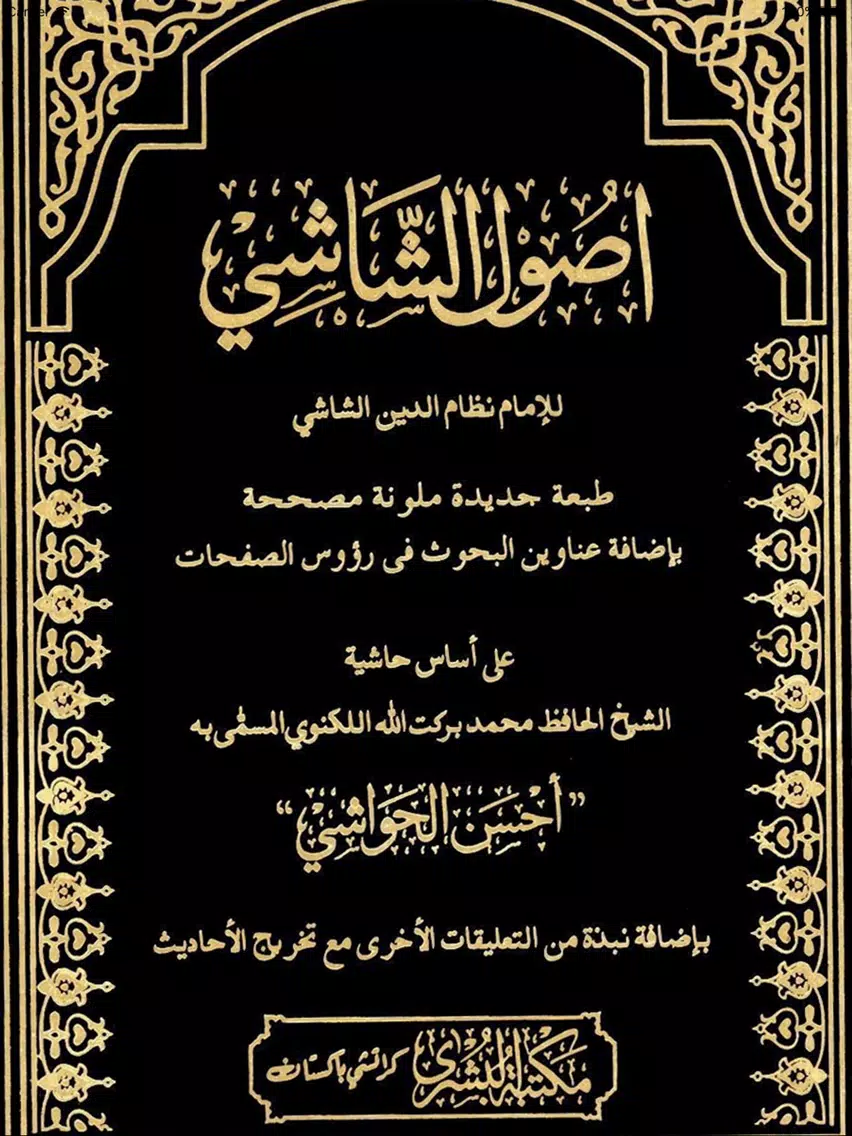 اصُوْل الشَّاشِيْ
للإمام نظام الدين الشاشي
طبعة جديدة ملونة مصححة
بإضافة عناوين البحوث في رؤوس الصفحات
على أساس حاشية
الشيخ الحافظ محمد بركت الله اللكنوي المسمّى به
”أَحْسَن الحَوَاشِيْ“
بإضافة نبذة من التعليقات الأخرى مع تخريج الأحاديث
مَكتَبة البُشرى كراتشي باكستان